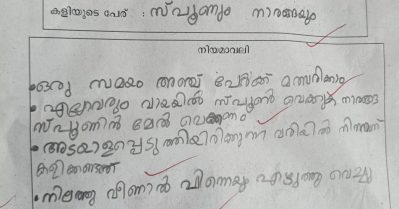 കളിയുടെ പേര് : സ്പൂണും നാരങ്ങയും
നിയമാവലി
•ഒരു സമയം അഞ്ച് പേർക്ക് മത്സരിക്കാം
• എല്ലാവരും വായയിൽ സ്പൂൺ വെക്കുക നാരങ്ങ
സ്പൂണിൻ മേൽ വെക്കണം
•അടയാളപ്പെടുത്തിയിരിക്കുന്ന വരിയിൽ നിന്നാണ്
കളിക്കേണ്ടത്
•നിലത്തു വീണാൽ പിന്നെയും എടുത്തു വെച്ചു